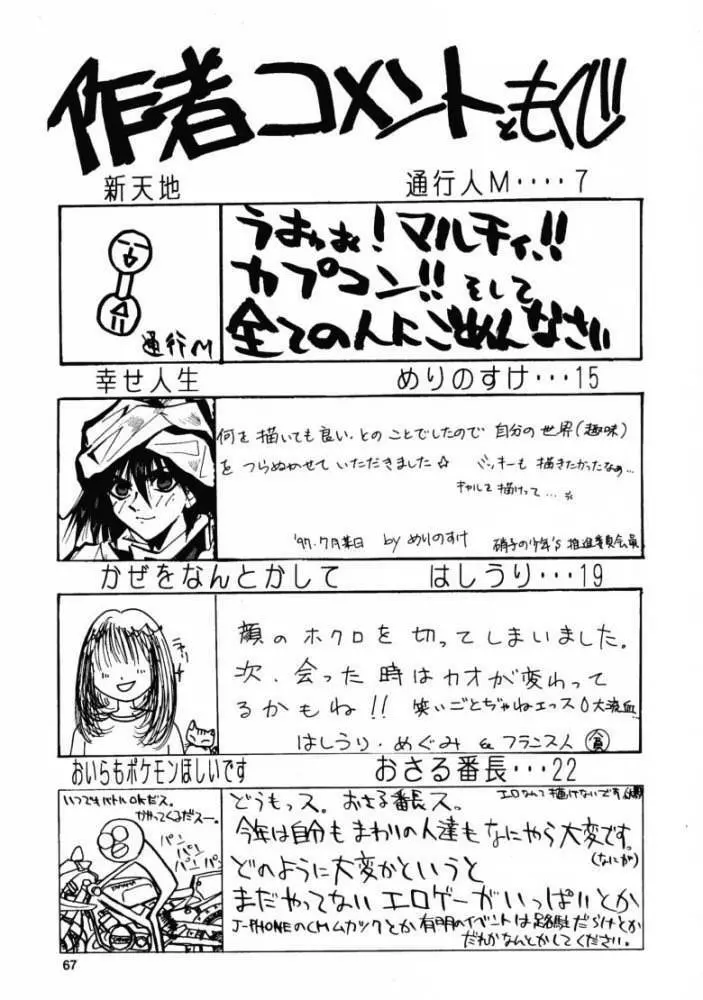 作者コメントともくじ
新天地 通行人M････7
うおぉぉ!マルチィ!!
カプコン!!そして
全ての人にごめんなさい
通行M
幸せ人生 めりのすけ･･･15
何を描いても良い、とのことでしたので 自分の世界(趣味)
をつらぬかせていただきました☆ バッキーも描きたかったなぁ…
ギャルで描けって…
'97.7月某日 by めりのすけ 硝子の少年's 推進委員会員
かぜをなんとかして はしうり･･･19
顔のホクロを切ってしまいました。
次、会った時はカオが変わって
るかもね!! 笑いごとぢゃねエっス 大流血
はしうり・めぐみ & フランス人 貧
おいらもポケモンほしいです おさる番長･･･22
いつでもバトルOKだス。
かかってくるだスー。
パン パン パン パン
どうもっス。おさる番長ス。
エロなんて描けないです
今年は自分もまわりの人達もなにやら大変です。
(なにが)
どのように大変かというと
まだやってないエロゲーがいっぱいとか
J-PHONEのCMムカックとか有明のイベントは路駐だらけとか
だれかなんとかしてください。
67